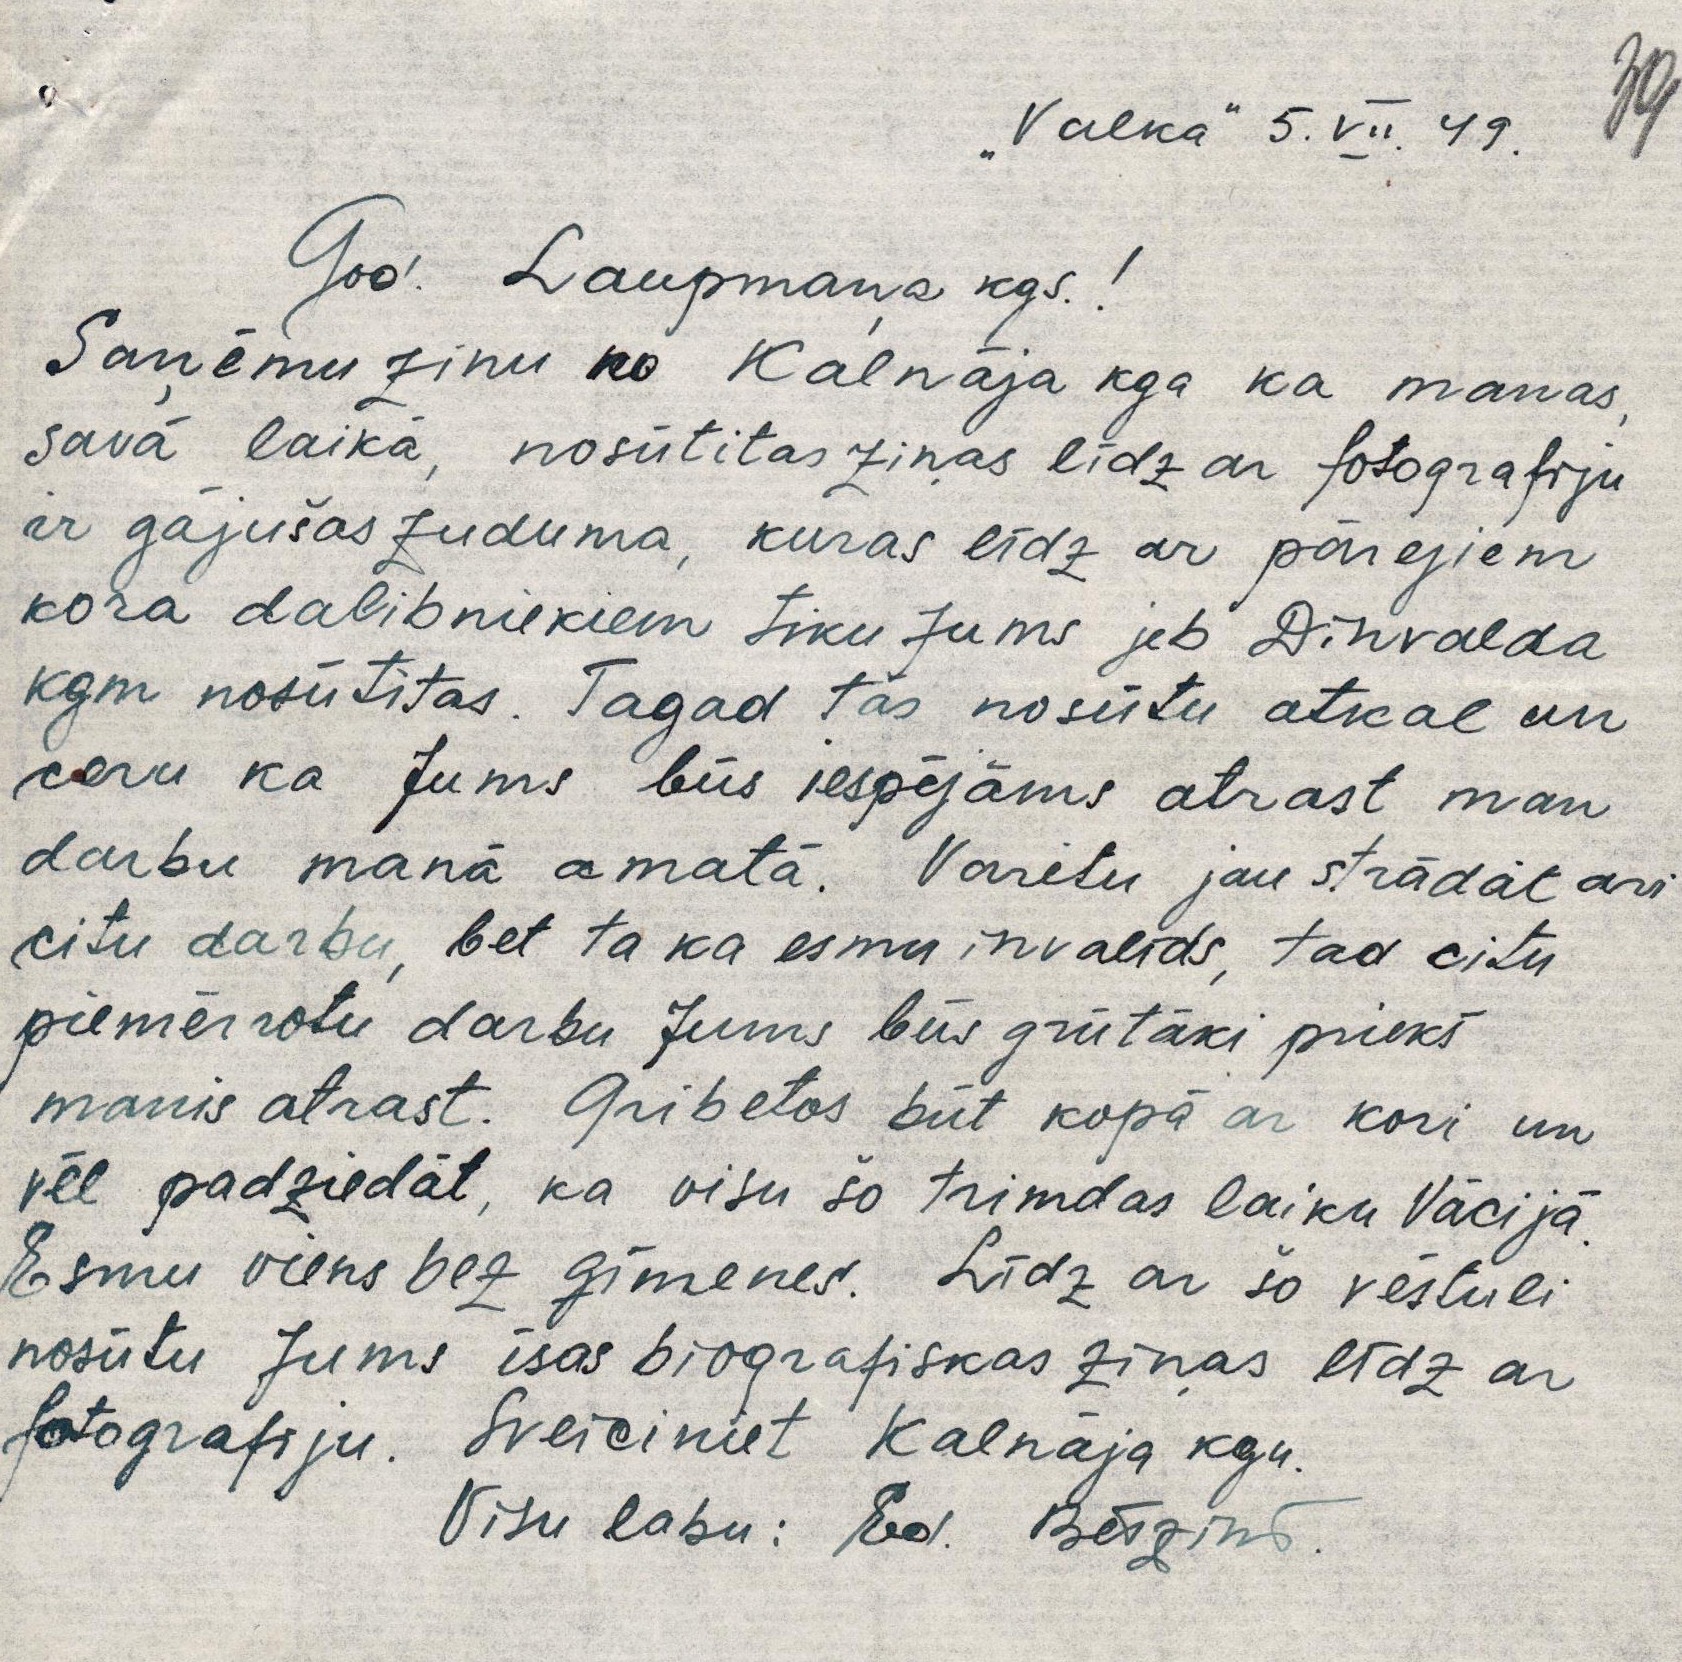 39
„Valka“ 5. VII. 49.
God. Laupmaņa kgs.!
Saņēmu zinu no Kalnāja kga ka manas,
savā laikā, nosūtitas ziņas līdz ar fotografiju
ir gājušas zuduma, kuras līdz ar pārejiem
kora dalibniekiem tiku Jums jeb Dinvalda
kgm nosūtitas. Tagad tās nosūtu atkal un
ceru ka Jums būs iespējāms atrast man
darbu manā amatā. Varētu jau strādāt ari
citu darbu, bet ta ka esmu invalids, tad citu
piemērrotu darbu Jums būs grūtāki prieks
manis atrast. Gribetos būt kopā ar kori un
vēl padziedāt, ka visu šo trimdas laiku Vācijā.
Esmu viens bez gimenes. Līdz ar šo vēstuli
nosūtu Jums īsas biografiskas ziņas līdz ar
fotografiju. Sveiciniet Kalnāja kgu.
Visu labu: Ed. Bērziņš.